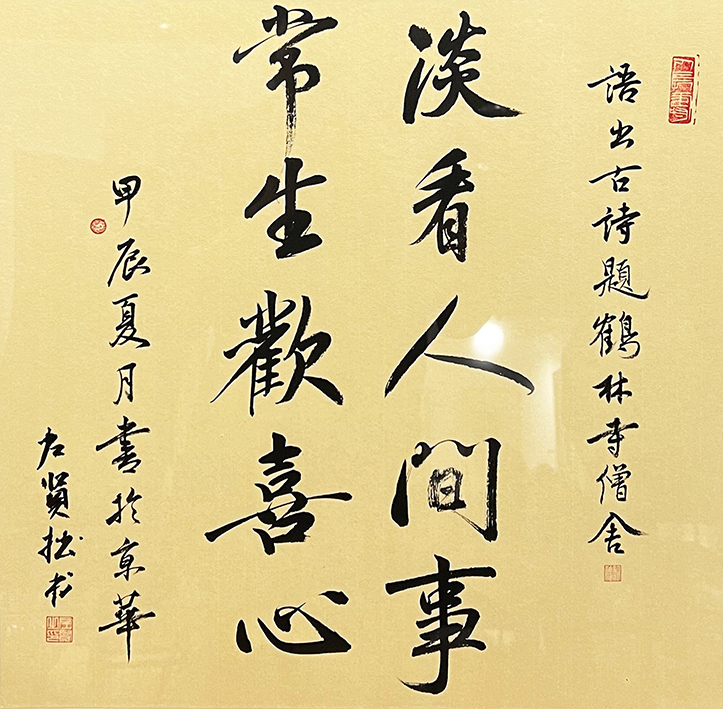 語出古詩題鶴林寺僧舍
淡看人間事
常生歡喜心
甲辰夏月書於京華
左賢拙書